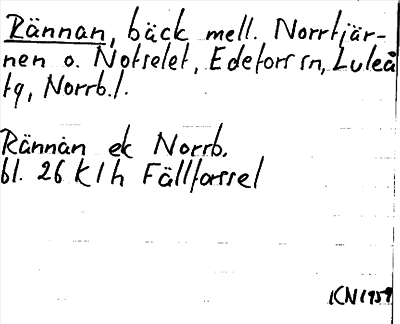 Rännan, bäck mell. Norrtjär-
nen o. Notselet, Edefors sn, Luleå
tg, Norrb.l.
Rännan ek Norrb.
bl. 26 K l h Fällforssel
KN 1959